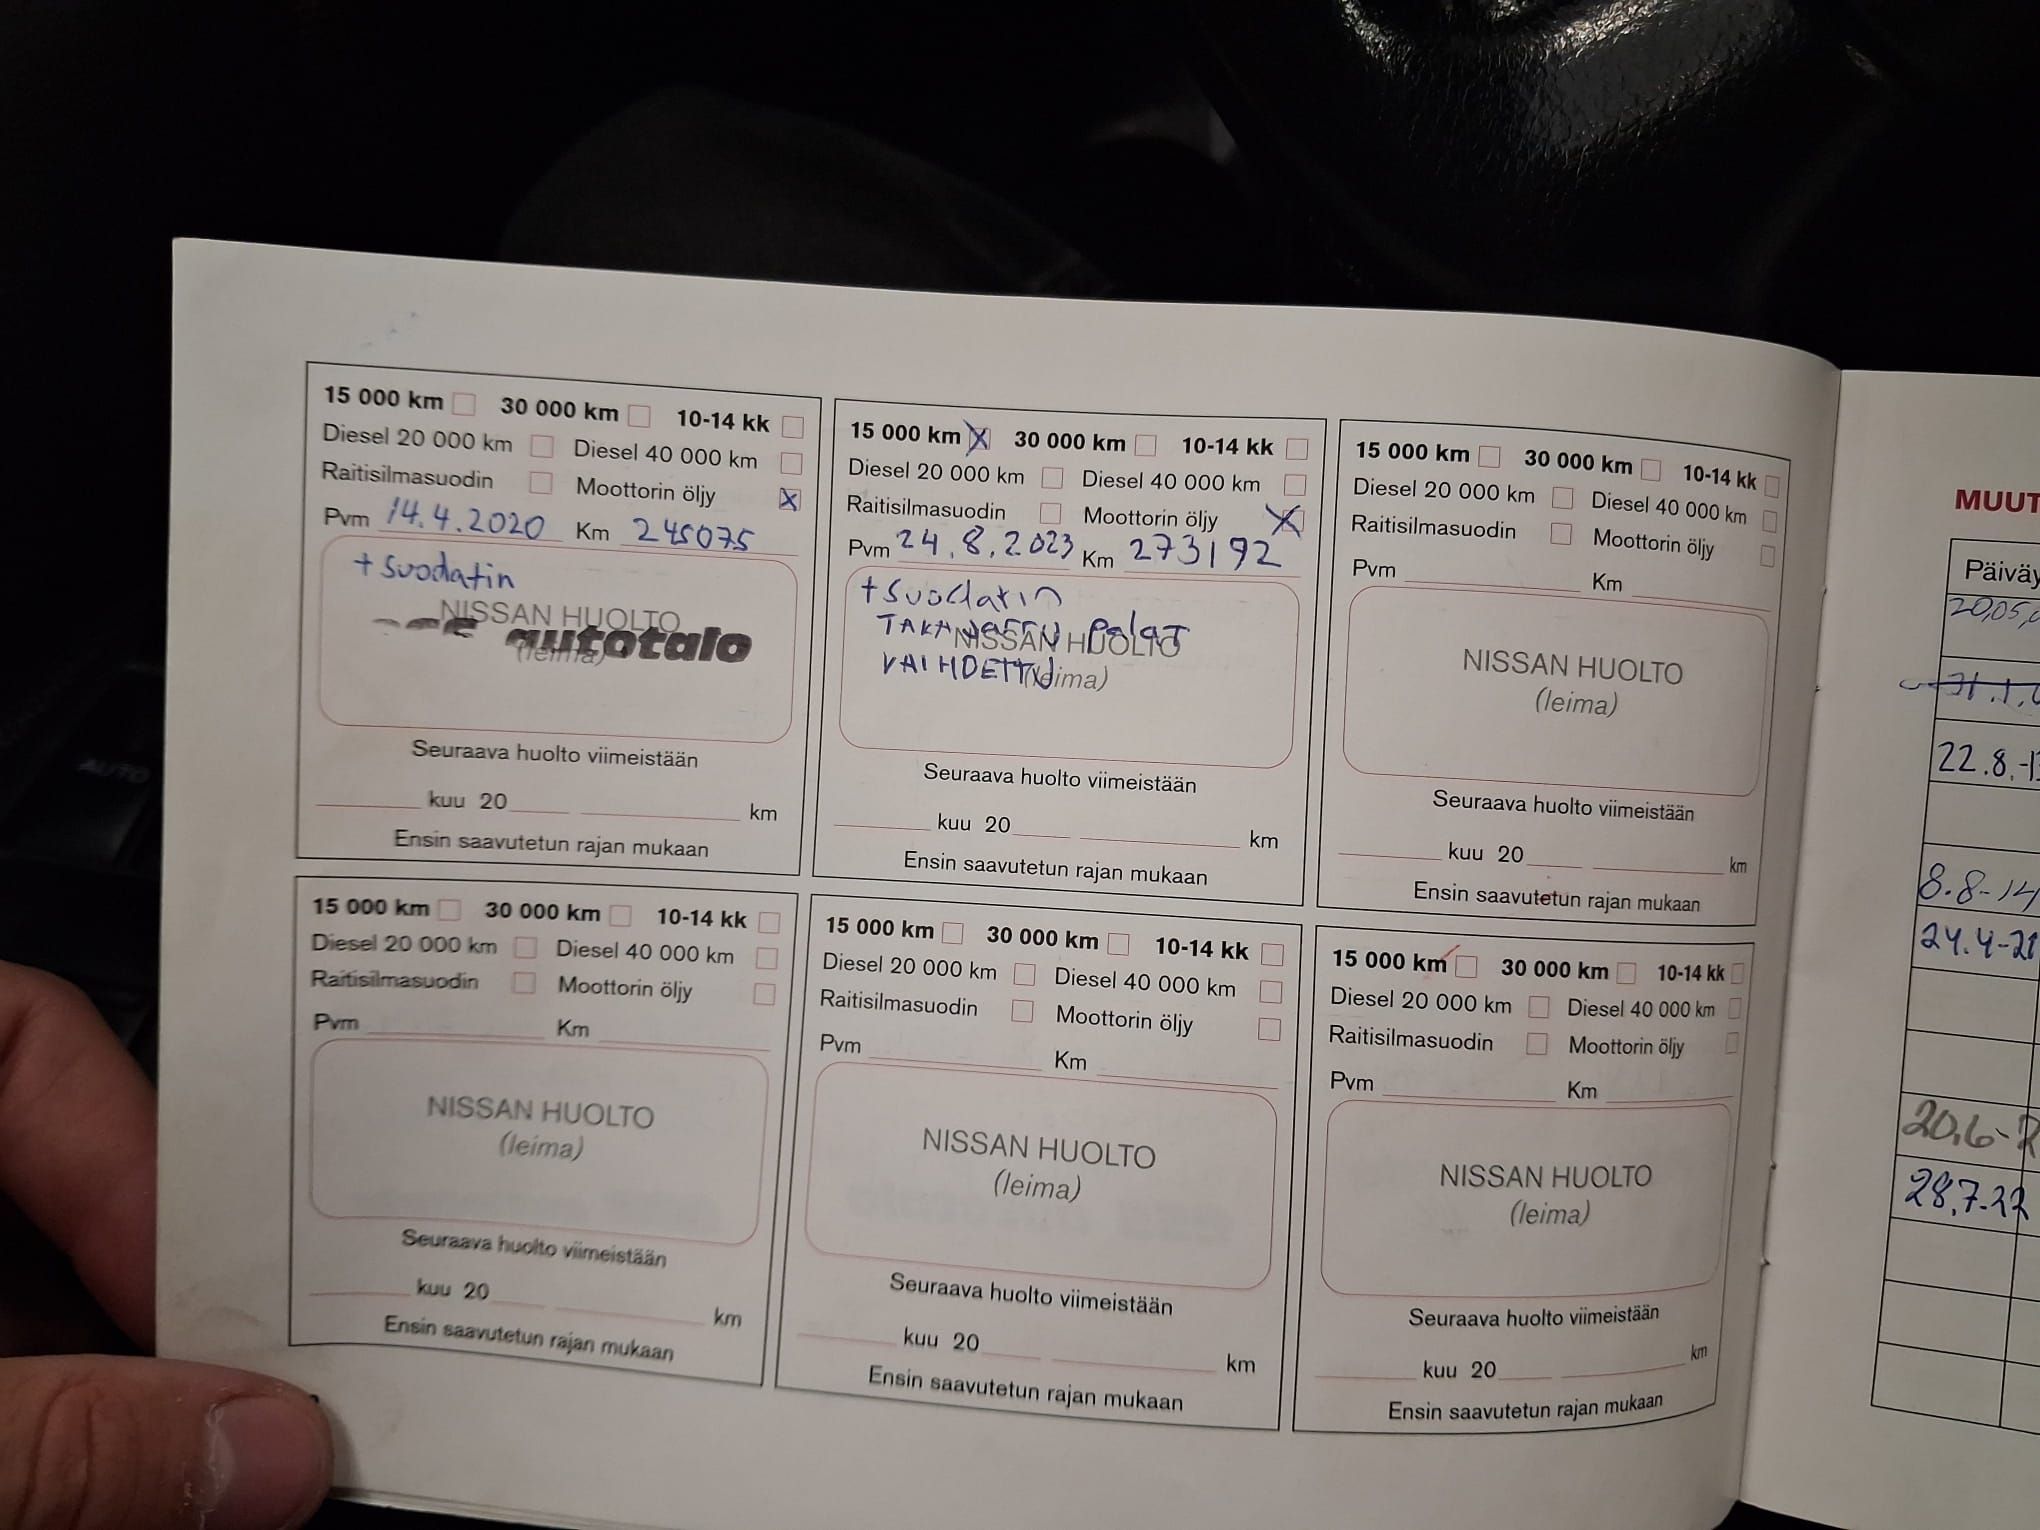 15 000 km 30 000 km 10-14 kk
Diesel 20 000 km Diesel 40 000 km
Raitisilmasuodin Moottorin öljy X
Pvm 14.4.2020 Km 245075
+ suodatin
NISSAN HUOLTO
autotalo
(leima)
Seuraava huolto viimeistään
kuu 20 km
Ensin saavutetun rajan mukaan
15 000 km X 30 000 km 10-14 kk
Diesel 20 000 km Diesel 40 000 km
Raitisilmasuodin Moottorin öljy X
Pvm 24.8.2023 Km 273192
+ suodatin
TAKAJARRU PalaT
NISSAN HUOLTO
VAIHDETTU
(leima)
Seuraava huolto viimeistään
kuu 20 km
Ensin saavutetun rajan mukaan
15 000 km 30 000 km 10-14 kk
Diesel 20 000 km Diesel 40 000 km
Raitisilmasuodin Moottorin öljy
Pvm Km
NISSAN HUOLTO
(leima)
Seuraava huolto viimeistään
kuu 20 km
Ensin saavutetun rajan mukaan
15 000 km 30 000 km 10-14 kk
Diesel 20 000 km Diesel 40 000 km
Raitisilmasuodin Moottorin öljy
Pvm Km
NISSAN HUOLTO
(leima)
Seuraava huolto viimeistään
kuu 20 km
Ensin saavutetun rajan mukaan
15 000 km 30 000 km 10-14 kk
Diesel 20 000 km Diesel 40 000 km
Raitisilmasuodin Moottorin öljy
Pvm Km
NISSAN HUOLTO
(leima)
Seuraava huolto viimeistään
kuu 20 km
Ensin saavutetun rajan mukaan
15 000 km 30 000 km 10-14 kk
Diesel 20 000 km Diesel 40 000 km
Raitisilmasuodin Moottorin öljy
Pvm Km
NISSAN HUOLTO
(leima)
Seuraava huolto viimeistään
kuu 20 km
Ensin saavutetun rajan mukaan
MUUT
Päiväy
22.8.-1
8.8-14
24.4-2
20.6-2
28.7-22
AUTO